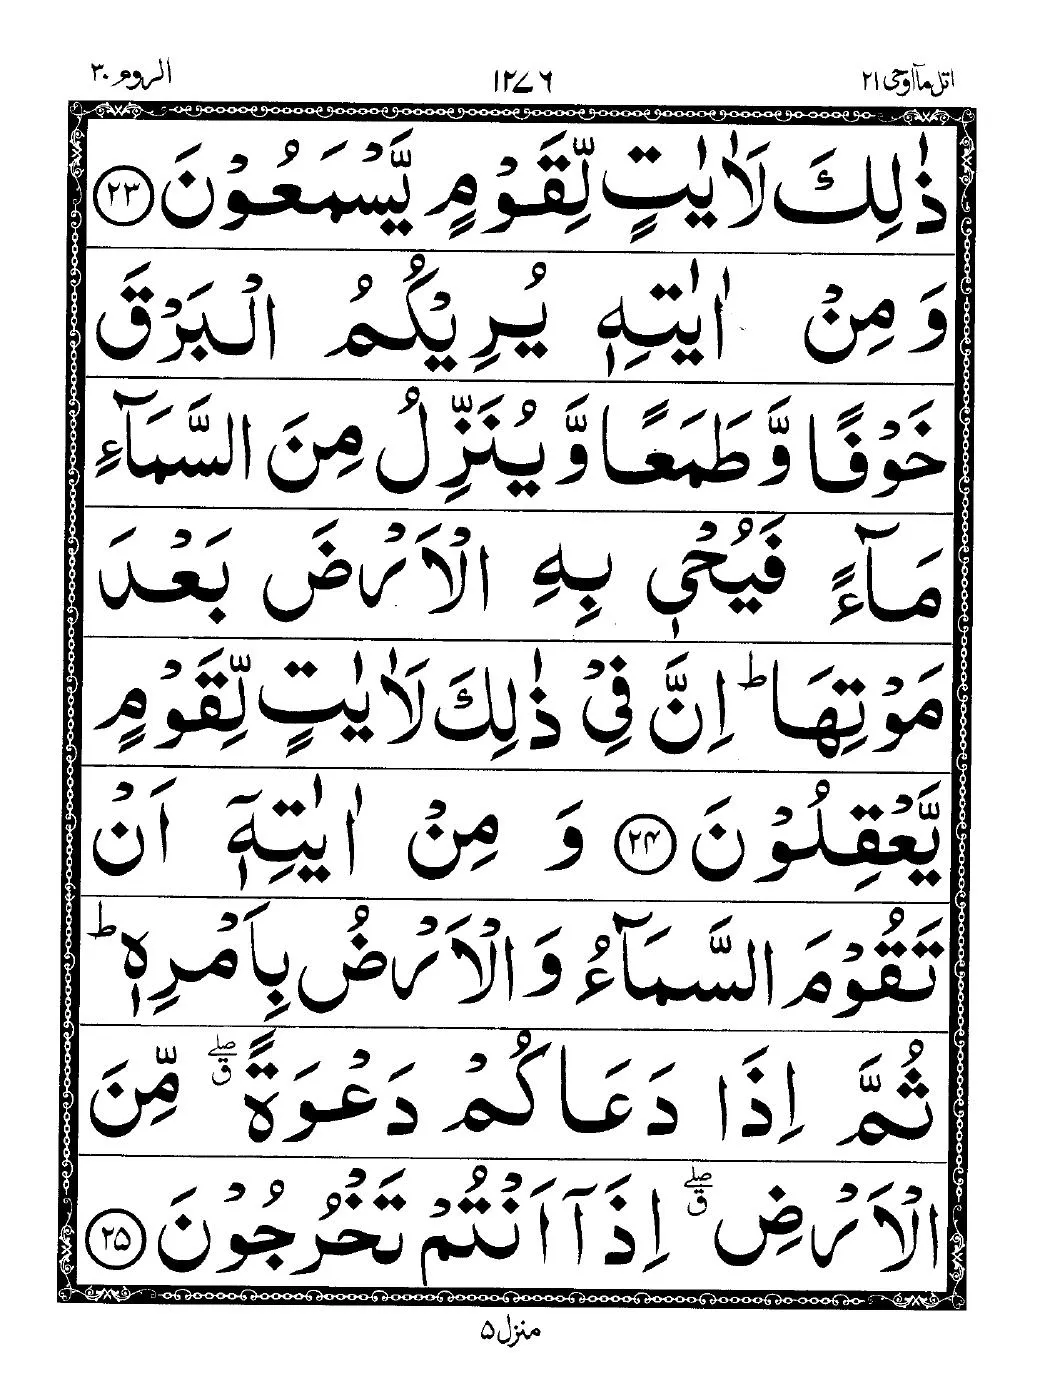 اتل مآ اوحی ۲۱ ۱۲۷۶ الروم ۳۰
ذٰلِكَ لَاٰیٰتٍ لِّقَوْمٍ یَّسْمَعُوْنَ ﴿۲۳﴾
وَ مِنْ اٰیٰتِهٖ یُرِیْكُمُ الْبَرْقَ
خَوْفًا وَّ طَمَعًا وَّ یُنَزِّلُ مِنَ السَّمَآءِ
مَآءً فَیُحْیٖ بِهِ الْاَرْضَ بَعْدَ
مَوْتِهَا ؕ اِنَّ فِیْ ذٰلِكَ لَاٰیٰتٍ لِّقَوْمٍ
یَّعْقِلُوْنَ ﴿۲۴﴾ وَ مِنْ اٰیٰتِهٖۤ اَنْ
تَقُوْمَ السَّمَآءُ وَ الْاَرْضُ بِاَمْرِهٖ ؕ
ثُمَّ اِذَا دَعَاكُمْ دَعْوَةً ۖۗ مِّنَ
الْاَرْضِ ۖۗ اِذَاۤ اَنْتُمْ تَخْرُجُوْنَ ﴿۲۵﴾
منزل ۵